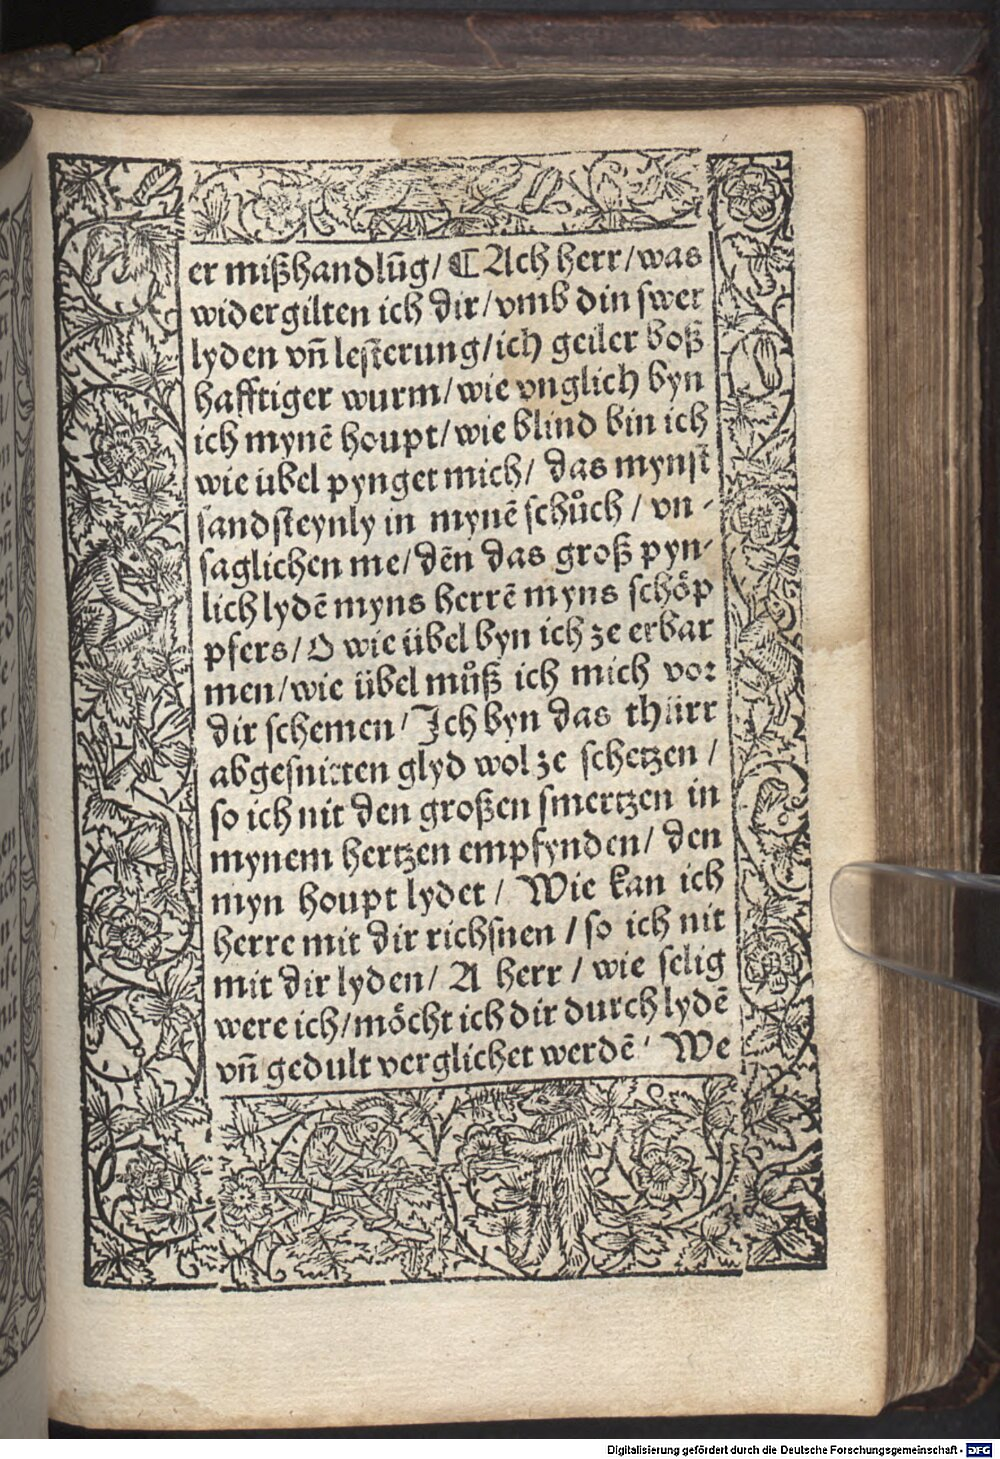 er mißhandlūg/ ⸿ Ach herr/was
widergilten ich dir/vmb din swer
lyden vñ lesterung/ich geiler boß
hafftiger wurm/wie vnglich byn
ich mynē houpt/wie blind bin ich
wie übel pynget mich/ das mynst
sandsteynly in mynē schůch / vn-
saglichen me/dēn das groß pyn-
lich lydē myns herrē myns schöp
pfers/O wie übel byn ich ze erbar
men/wie übel můß ich mich vor
dir schemen/Ich byn das thürr
abgesnitten glyd wol ze schetzen /
so ich nit den großen smertzen in
mynem hertzen empfynden/ den
myn houpt lydet / Wie kan ich
herre mit dir richsnen /so ich nit
mit dir lyden/ A herr / wie selig
were ich/möcht ich dir durch lydē
vñ gedult verglichet werdē/ We
Digitalisierung gefördert durch die Deutsche Forschungsgemeinschaft - DFG